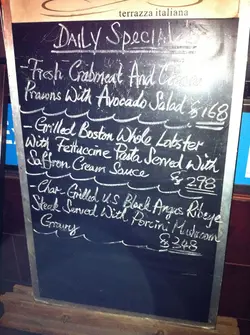 terrazza italiana
DAILY Special
-Fresh Crabmeat And
Prawns With Avocado Salad $168
-Grilled Boston Whole Lobster
With Fettuccine Pasta Served With
Saffron Cream Sauce $278
-Char-Grilled U.S Black Angus Ribeye
Steak Served With Porcini Mushroom
Gravy $248